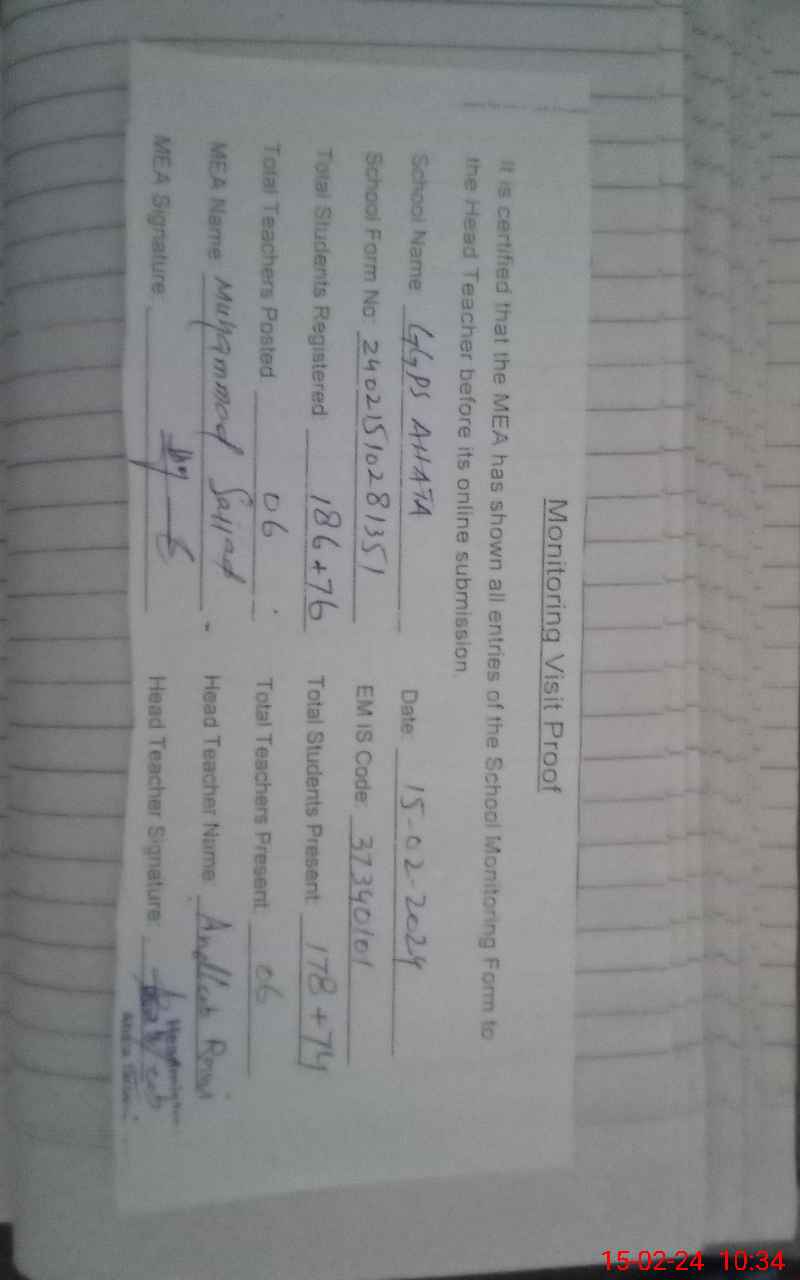 Monitoring Visit Proof
It is certified that the MEA has shown all entries of the School Monitoring Form to
the Head Teacher before its online submission.
School Name GGPS AHATA Date: 15-02-2024
School Form No: 24021510281351 EMIS Code: 37340101
Total Students Registered 186+76 Total Students Present: 178+74
Total Teachers Posted 06 Total Teachers Present: 06
MEA Name Muhammad Sajjad Head Teacher Name:
MEA Signature: Head Teacher Signature:
15-02-24 10:34